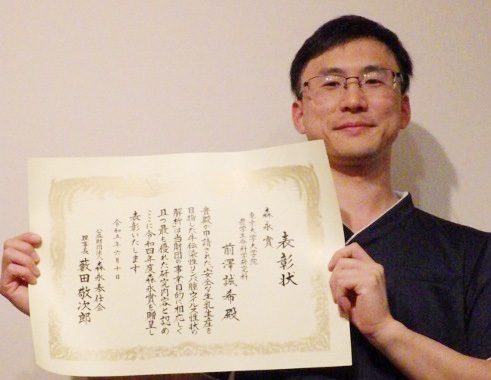 表彰状
森永賞
東京大学大学院
農学生命科学研究科
前澤誠希 殿
貴殿の申請された「安全な生乳生産を
目指した牛伝染性リンパ腫ウイルス性状の
解析」は当財団の事業目的に相応しく
且つ最も優れた研究内容と認め
ここに令和四年度森永賞を贈呈し
表彰いたします
令和五年六月十日
公益財団法人 森永奉仕会
理事長 藪田敬次郎